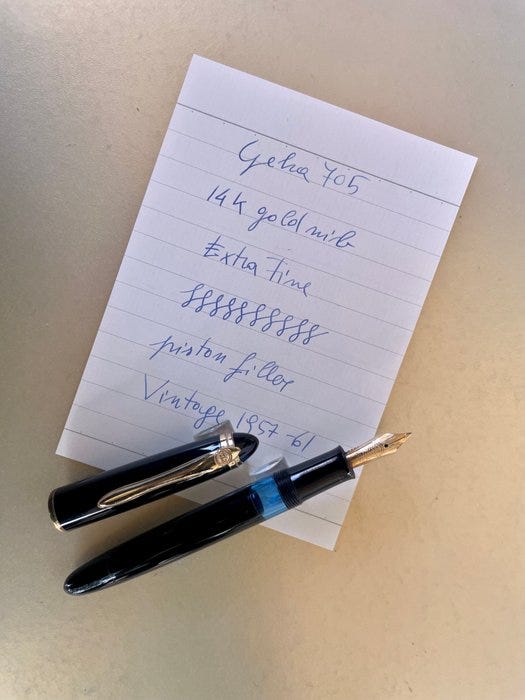 Geha 705
14k gold nib
Extra Fine
piston filler
Vintage 1957-61